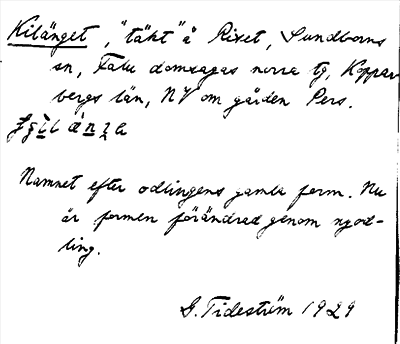 Kilänget, "täkt" å Rixet, Sundborns
sn, Falu domsagas norra tg, Koppar-
bergs län, NV om gården Pers.
Namnet efter odlingens gamla form. Nu
är formen förändrad genom nyod-
ling.
G. Tideström 1929